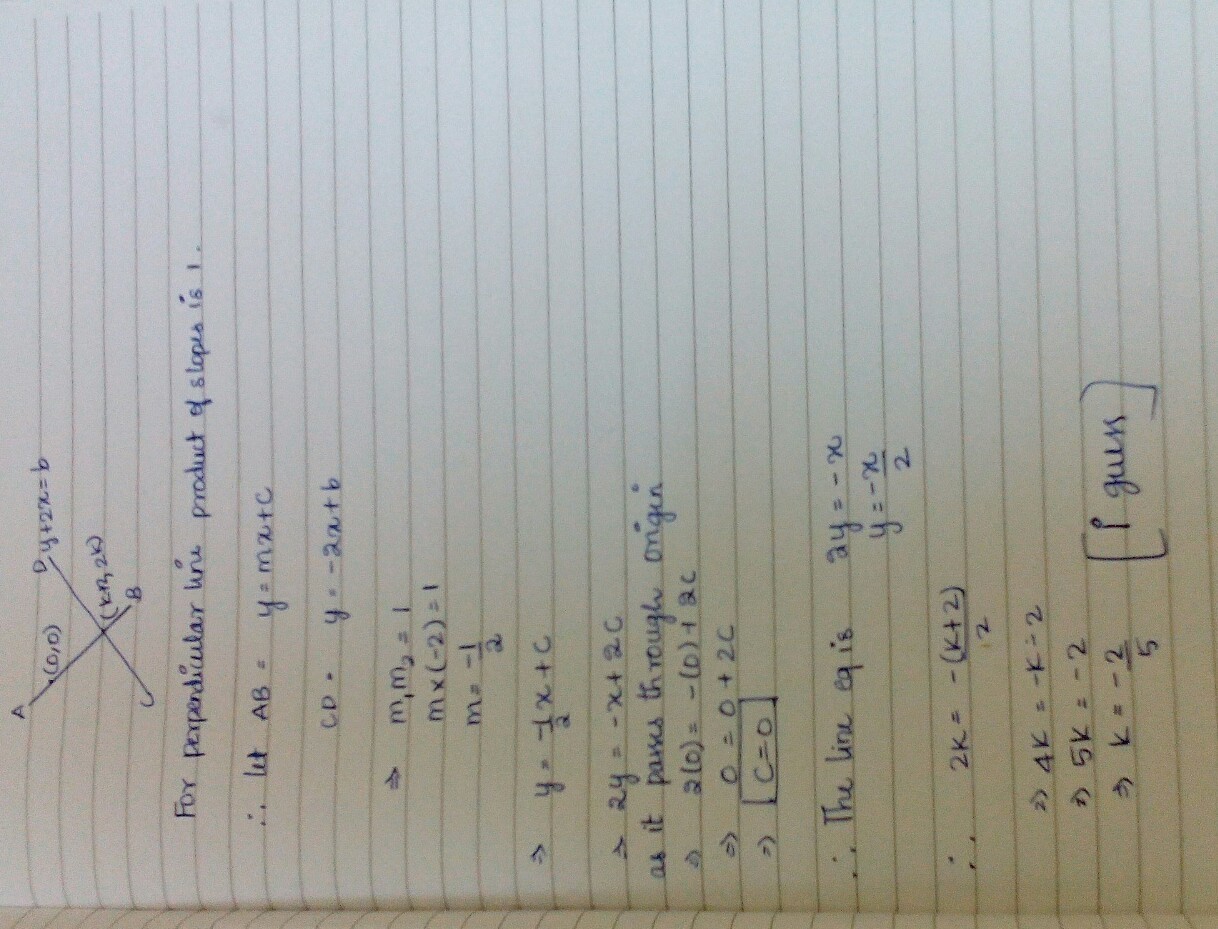 A
(0,0)
D y+2x=b
(k+2, 2k)
B
C
For perpendicular line product of slopes is 1.
∴ let AB = y = mx+c
CD = y = -2x+b
⇒ m₁m₂ = 1
m×(-2) = 1
m = -1/2
⇒ y = -1/2 x + c
⇒ 2y = -x + 2c
as it passes through origin
⇒ 2(0) = -(0) + 2c
⇒ 0 = 0 + 2c
⇒ [c=0]
∴ The line eq is 2y = -x
y = -x/2
∴ 2k = -(k+2)/2
⇒ 4k = -k-2
⇒ 5k = -2
⇒ k = -2/5 [I guess]